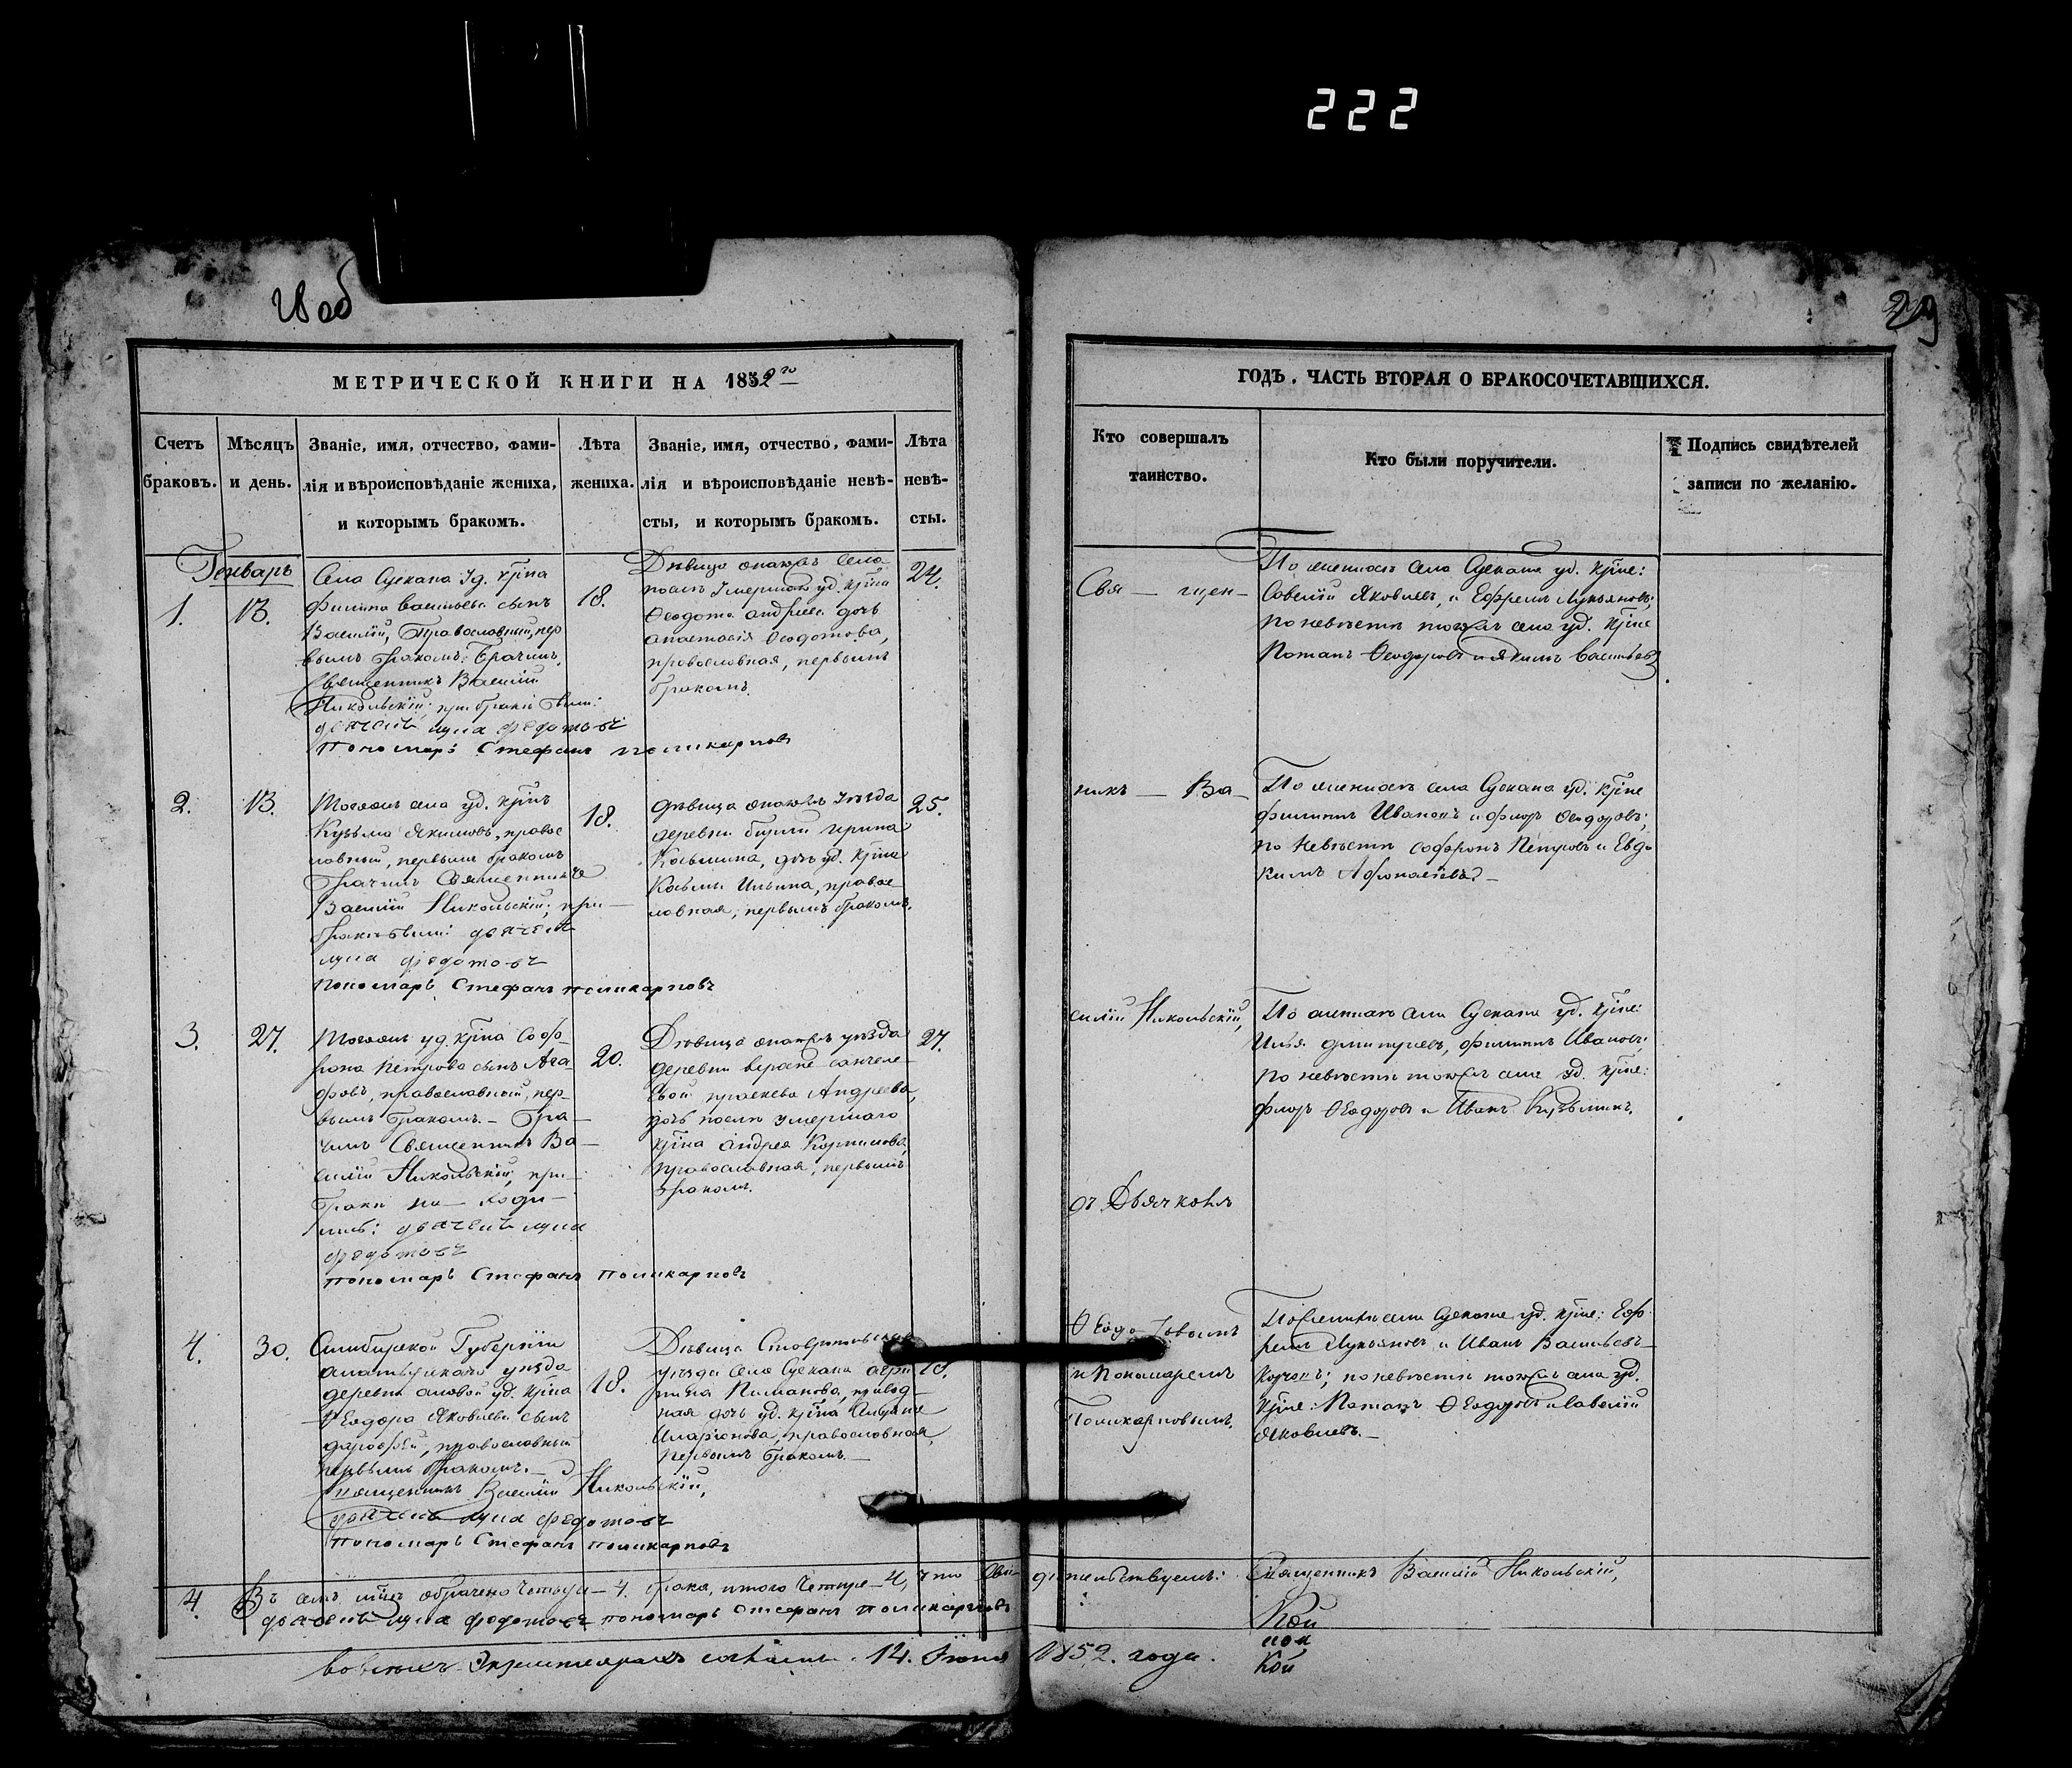 222
28 об
29
МЕТРИЧЕСКОЙ КНИГИ НА 1852 го
Счетъ браковъ.
Мѣсяцъ и день.
Званіе, имя, отчество, фами-
лія и вѣроисповѣданіе жениха,
и которымъ бракомъ.
Лѣта жениха.
Званіе, имя, отчество, фами-
лія и вѣроисповѣданіе невѣ-
сты, и которымъ бракомъ.
Лѣта невѣ-
сты.
Генварь
1.
13.
Села Сускана уд. крт̃на
Филипа Васильева сынъ
Василій, Православный, пер
вымъ бракомъ: Брачилъ
Священникъ Василій
Никольскій; при бракѣ были:
дьячекъ лука федотовъ
пономарь Стефанъ поликарповъ
18.
Дѣвица
послѣ умершаго уд. крт̃на
Ѳеодота андреева дочь
анастасія Ѳеодотова,
православная, первымъ
бракомъ.
24.
2.
13.
Тогоже села уд. крт̃нъ
Кузьма Якимовъ, правос
лавный, первымъ бракомъ
Брачилъ Священникъ
Василій Никольскій; при
бракѣ были: дьячекъ
лука федотовъ
пономарь Стефанъ поликарповъ
18.
дѣвица тогоже уѣзда
деревни ирина
Козьмина, дочь уд. крт̃на
Козьмы Ильина, правос
лавная, первымъ бракомъ.
25.
3.
27.
Тогоже уд. крт̃на Соф-
рона Петрова сынъ Ага-
фонъ, православный, пер
вымъ бракомъ. - Бра-
чилъ Священникъ Ва-
силій Никольскій; при
бракѣ на - ходи-
лись: дьячекъ лука
федотовъ
пономарь Стефанъ поликарповъ
20.
Дѣвица тогоже уѣзда
деревни
праскева Андреева,
дочь послѣ умершаго
крт̃на Андрея
православная, первымъ
бракомъ.
27.
4.
30.
Симбирской Губерніи
уѣзда
деревни уд. крт̃на
Ѳеодора Яковлева сынъ
дорофей, православный
первымъ бракомъ. -
Священникъ Василій Никольскій,
дьячекъ лука федотовъ
пономарь Стефанъ поликарповъ
18.
Дѣвица Ставропольскаго
уѣзда села Сускана
привод-
ная дочь уд. крт̃на
Иларіонова, православная,
первымъ бракомъ. -
4.
Въ семъ м̃цѣ обрачено Четыре - 4. брака, итого Четыре - 4, что сви
дьячекъ лука федотовъ пономарь Стефанъ поликарповъ
14. Іюня
ГОДЪ. ЧАСТЬ ВТОРАЯ О БРАКОСОЧЕТАВШИХСЯ.
Кто совершалъ таинство.
Кто были поручители.
Подпись свидѣтелей
записи по желанію.
Свя - щен -
По женихѣ села Сускана уд. крт̃не:
Савелій Яковлевъ, и Ефремъ Лукьяновъ;
по невѣстѣ тогожъ села уд. крт̃не
Потапъ Ѳеодоровъ и Якимъ Васильевъ
никъ - Ва -
По женихѣ села Сускана уд. крт̃не
филиппъ Ивановъ и флоръ Ѳеодоровъ;
по невѣстѣ софронъ Петровъ и Евдо
кимъ Афонасьевъ. -
силій Никольскій,
По женихѣ села Сускана уд. крт̃не:
Илья дмитріевъ, филиппъ Ивановъ;
по невѣстѣ тогожъ села уд. крт̃не:
флоръ Ѳеодоровъ и Иванъ Кузьминъ.
съ Дьячковъ
Ѳедо-товымъ
и Пономаремъ
Поликарповымъ.
По женихѣ села Сускана уд. крт̃не: Еф-
ремъ Лукьяновъ и Иванъ Васильевъ
по невѣстѣ тогожъ села уд.
крт̃не: Потапъ Ѳеодоровъ и Савелій
Яковлевъ. -
дѣтельствуемъ: Священникъ Василій Никольскій,
1852. года.